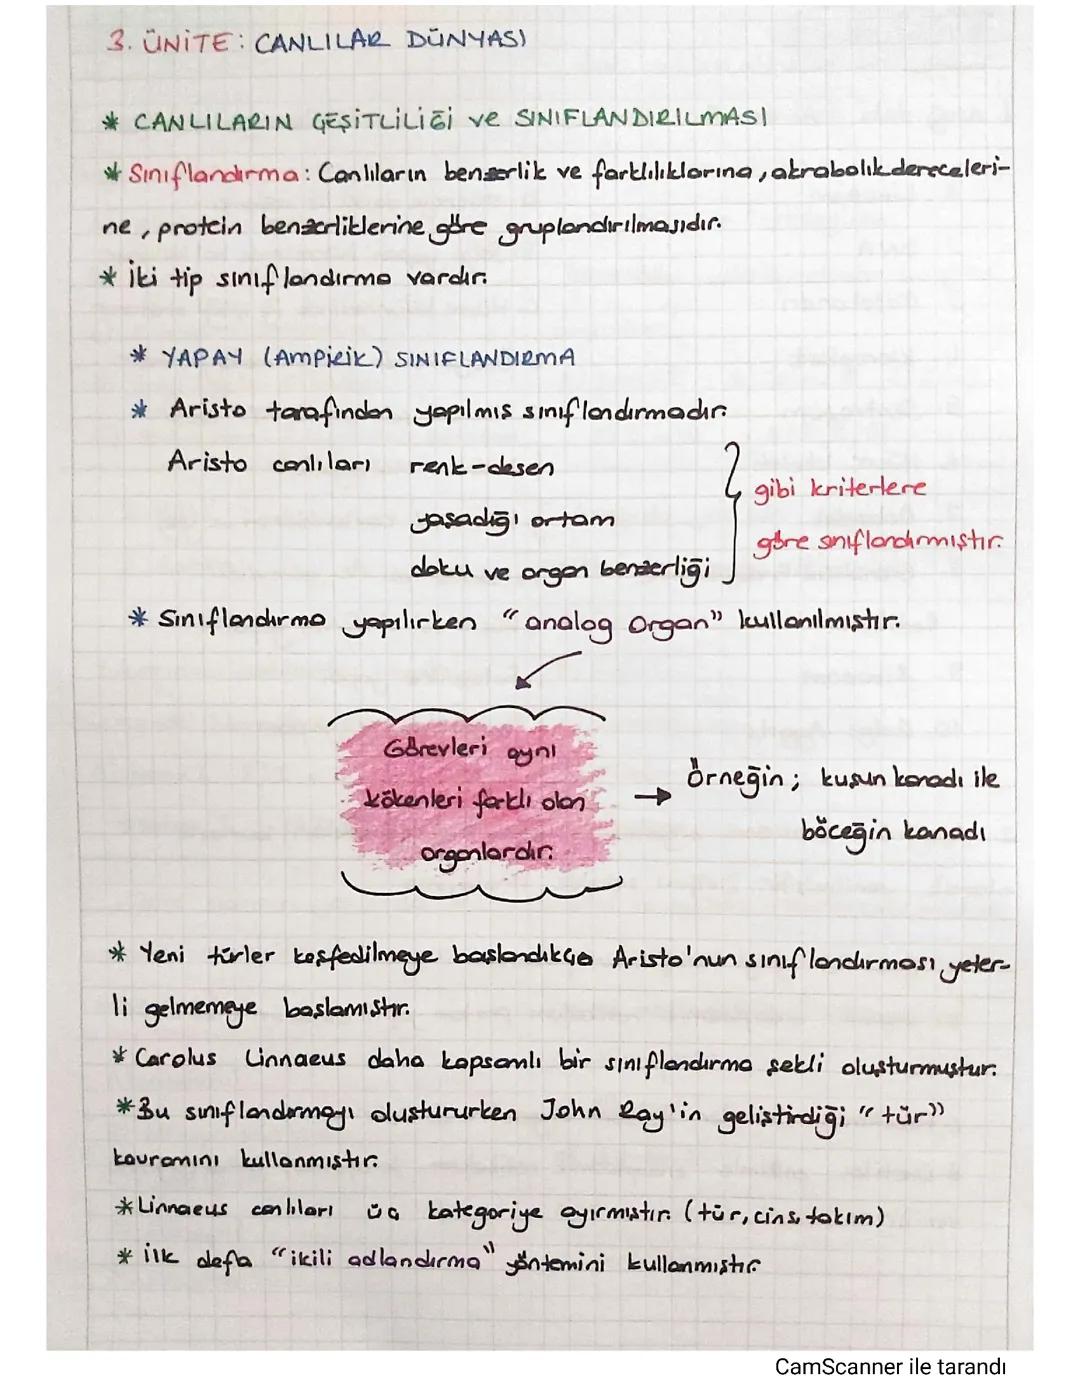 3. ÜNİTE: CANLILAR DÜNYASI
* CANLILARIN ÇEŞİTLİLİĞİ ve SINIFLANDIRILMASI
* Sınıflandırma: Canlıların benzerlik ve farklılıklarına, akrabalık dereceleri-
ne, protein benzerliklerine göre gruplandırılmasıdır.
* İki tip sınıflandırma vardır.
* YAPAY (AMPİRİK) SINIFLANDIRMA
* Aristo tarafından yapılmış sınıflandırmadır.
Aristo canlıları renk-desen
yaşadığı ortam
doku ve organ benzerliği
gibi kriterlere
göre sınıflandırmıştır.
* Sınıflandırma yapılırken "analog organ" kullanılmıştır.
Görevleri aynı
kökenleri farklı olan
organlardır.
→ Örneğin; kuşun kanadı ile
böceğin kanadı
* Yeni türler keşfedilmeye başlandıkça Aristo'nun sınıflandırması yeter-
li gelmemeye başlamıştır.
* Carolus Linnaeus daha kapsamlı bir sınıflandırma şekli oluşturmuştur.
* Bu sınıflandırmayı oluştururken John Ray'in geliştirdiği "tür"
kavramını kullanmıştır.
* Linnaeus canlıları üç kategoriye ayırmıştır. (tür, cins, takım)
* İlk defa "ikili adlandırma" yöntemini kullanmıştır.
CamScanner ile tarandı